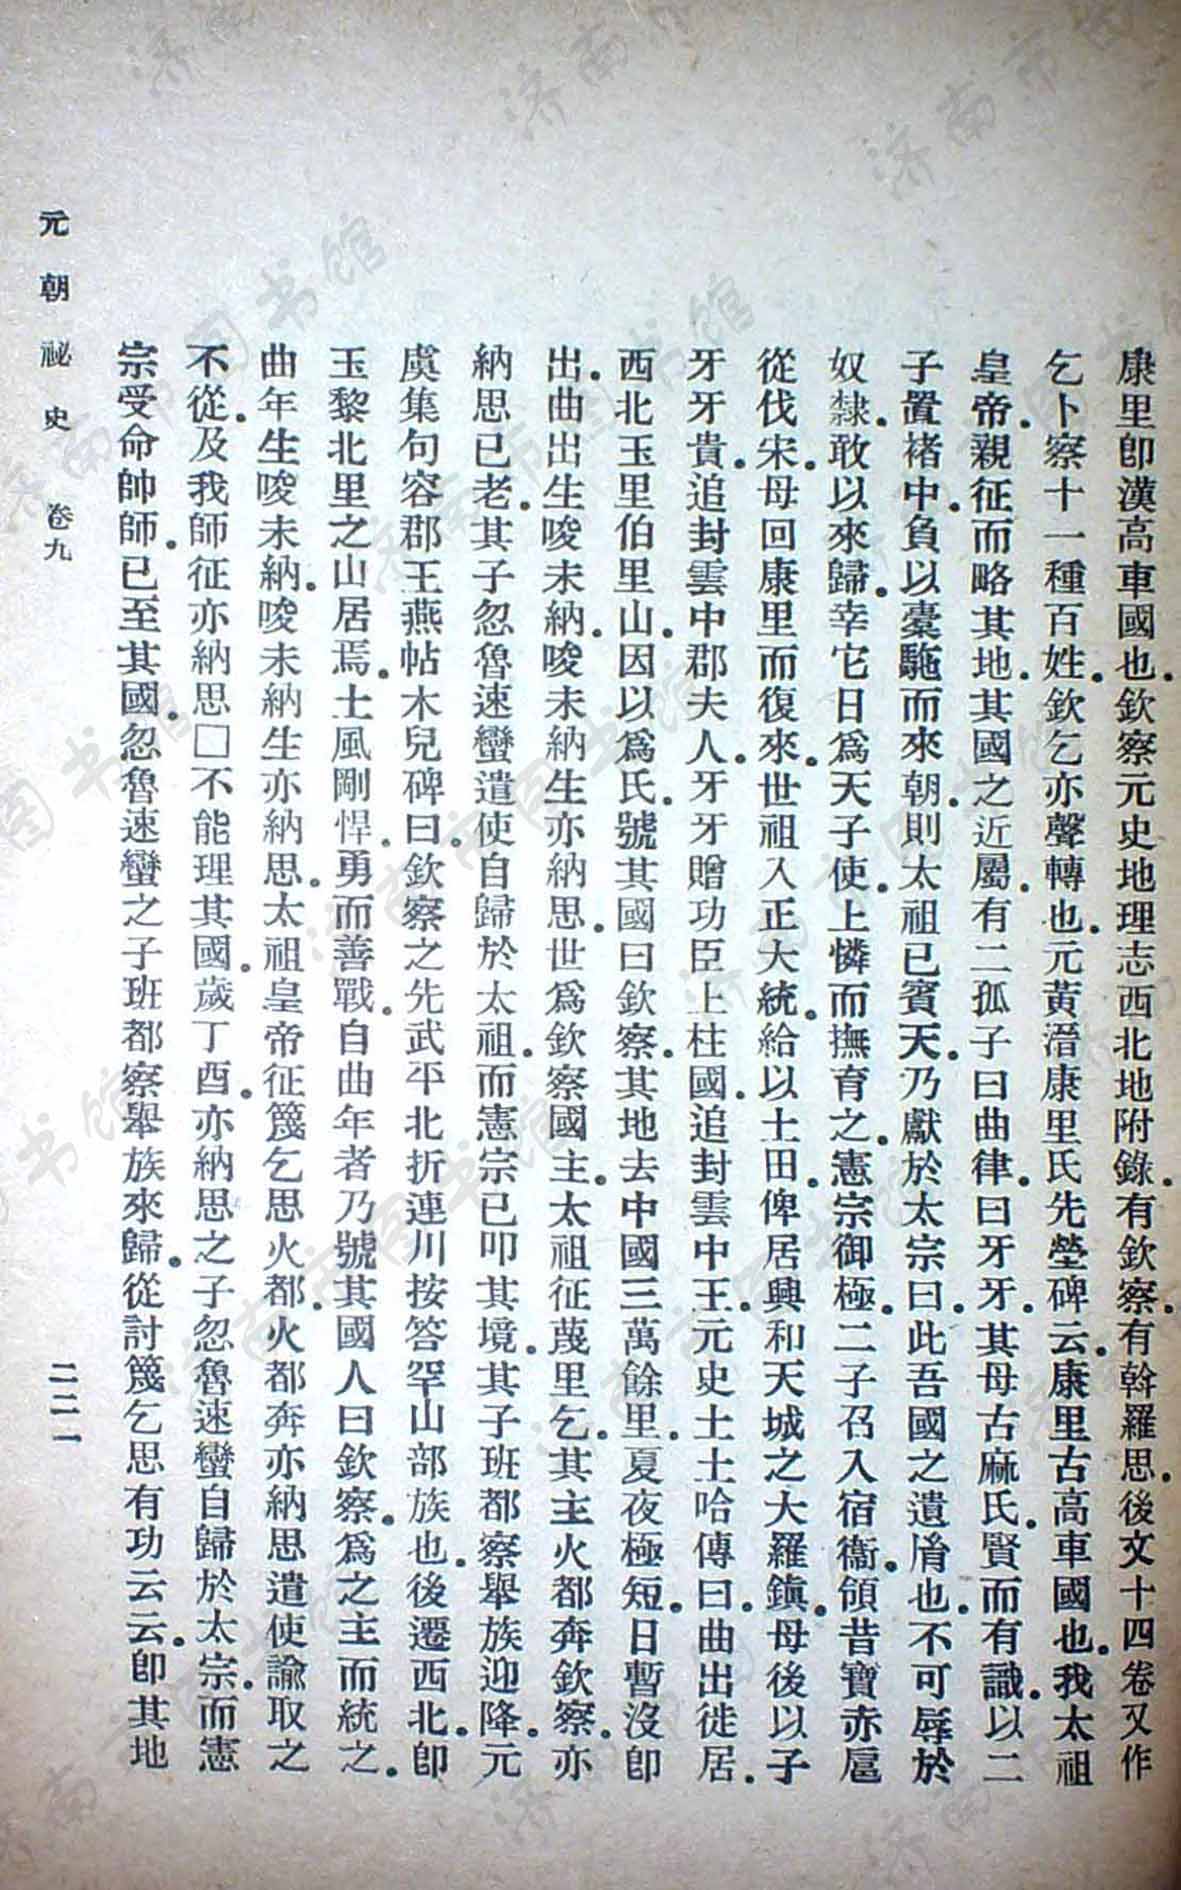 康里卽漢高車國也。欽察元史地理志西北地附錄。有欽察。有斡羅思。後文十四卷又作
乞卜察十一種百姓。欽乞亦聲轉也。元黃溍康里氏先塋碑云。康里古高車國也。我太祖
皇帝。親征而略其地。其國之近屬。有二孤子曰曲律。曰牙牙。其母古麻氏。賢而有識。以二
子置褚中。負以橐駞而來朝。則太祖已賓天。乃獻於太宗曰。此吾國之遺胤也。不可辱於
奴隸。敢以來歸。幸它日爲天子使。上憐而撫育之。憲宗御極。二子召入宿衞。領昔寶赤扈
從伐宋。母回康里而復來。世祖入正大統。給以土田。俾居興和天城之大羅鎮。母後以子
牙牙貴。追封雲中郡夫人。牙牙贈功臣上柱國。追封雲中王。元史土土哈傳曰。曲出徙居。
西北玉里伯里山。因以爲氏。號其國曰欽察。其地去中國三萬餘里。夏夜極短。日暫沒卽
出。曲出生唆末納。唆末納生亦納思。世爲欽察國主。太祖征蔑里乞。其主火都奔欽察。亦
納思已老。其子忽魯速蠻遣使自歸於太祖。而憲宗已叩其境。其子班都察舉族迎降。元
虞集句容郡王燕帖木兒碑曰。欽察之先武平北折連川按答罕山部族也。後遷西北。卽
玉黎北里之山居焉。土風剛悍。勇而善戰。自曲年者乃號其國人曰欽察。爲之主而統之。
曲年生唆末納。唆末納生亦納思。太祖皇帝征篾乞思火都。火都奔亦納思遣使諭取之
不從。及我師征亦納思□不能理其國。歲丁酉。亦納思之子忽魯速蠻自歸於太宗。而憲
宗受命帥師。已至其國。忽魯速蠻之子班都察舉族來歸。從討篾乞思有功云云。卽其地
元朝祕史 卷九 二二一